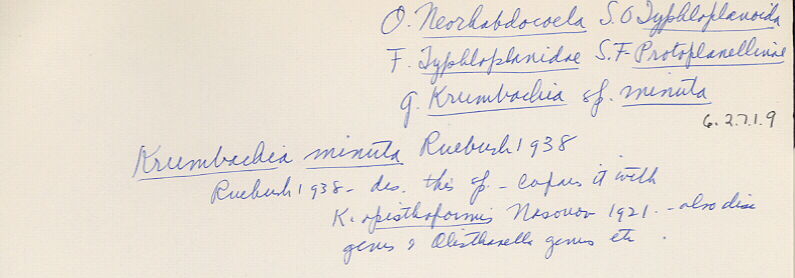 O. Neorhabdocoela S.O Typhloplanoida
F. Typhloplanidae S.F. Protoplanellinae
g. Krumbachia sp. minuta
6.2.7.1.9
Krumbachia minuta Ruebush 1938
Ruebush 1938 - des. this sp. - compares it with
K. opisthoformis Nasonov 1921 - also disc
genus & Olisthanella genus etc.